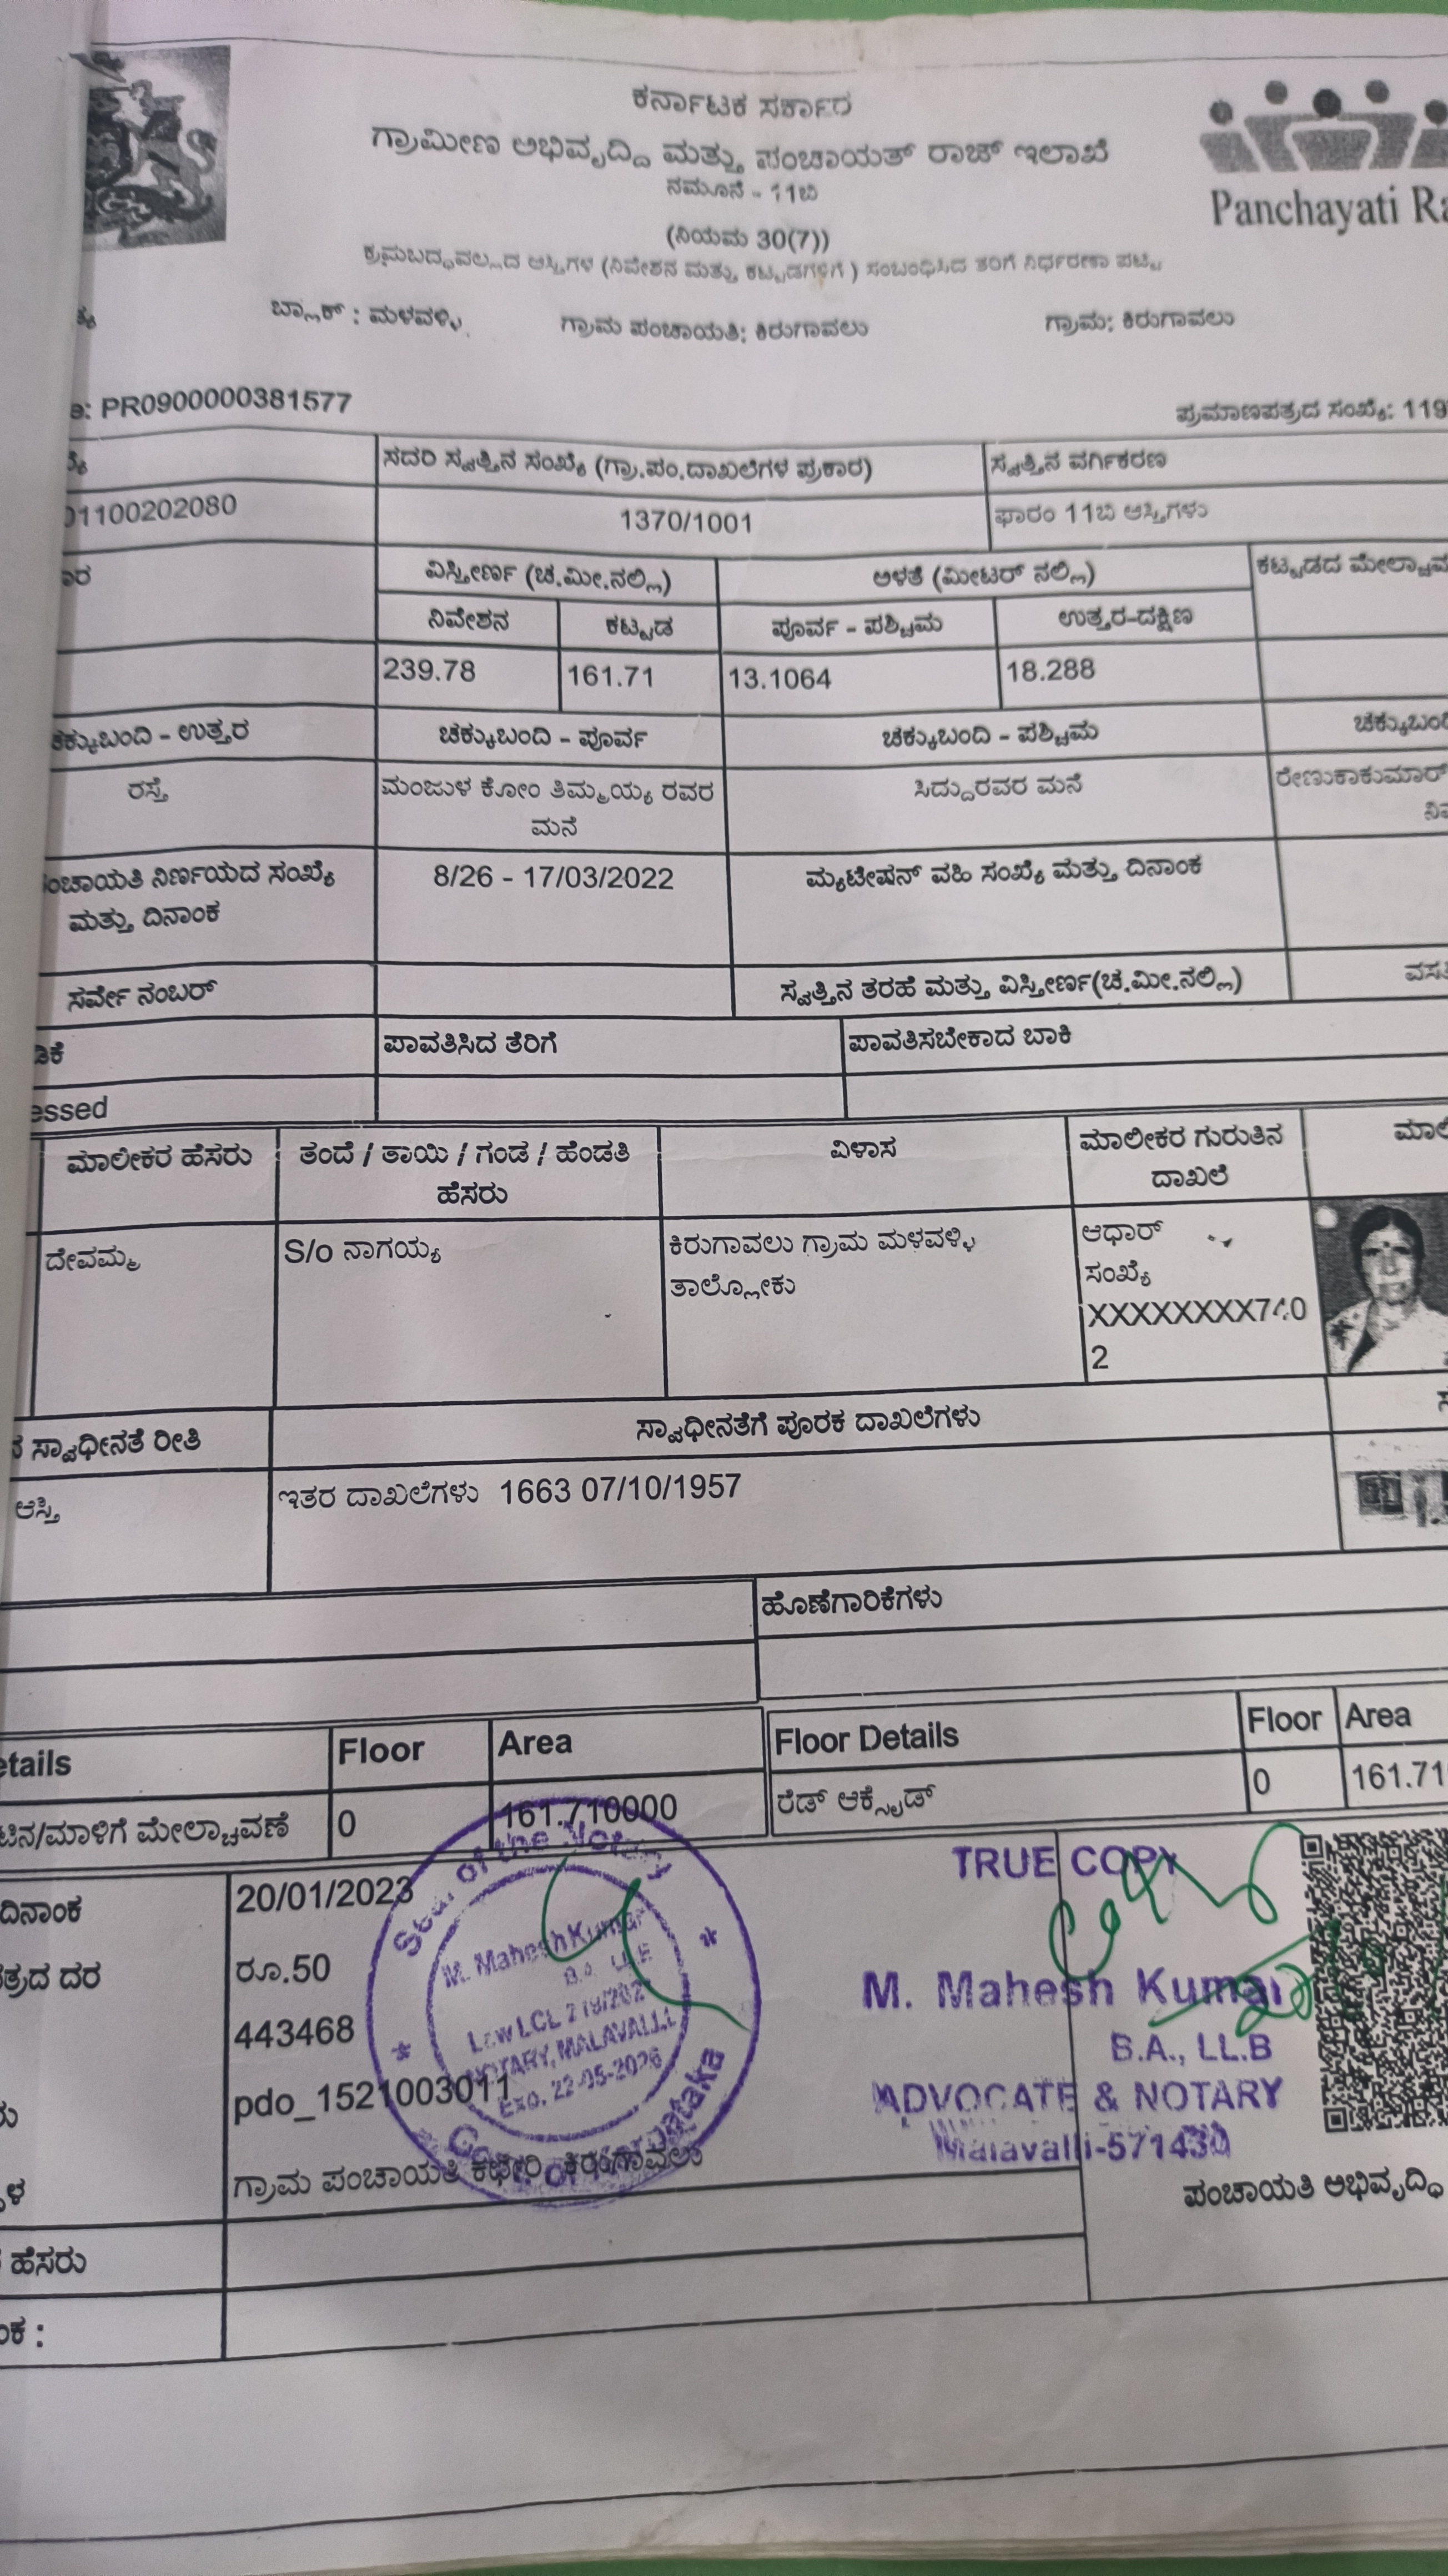 ಕರ್ನಾಟಕ ಸರ್ಕಾರ
ಗ್ರಾಮೀಣ ಅಭಿವೃದ್ದಿ ಮತ್ತು ಪಂಚಾಯತ್ ರಾಜ್ ಇಲಾಖೆ
ನಮೂನೆ - 11ಬಿ
Panchayati Ra
(ನಿಯಮ 30(7))
ಕ್ರಮಬದ್ಧವಲ್ಲದ ಆಸ್ತಿಗಳ (ನಿವೇಶನ ಮತ್ತು ಕಟ್ಟಡಗಳಿಗೆ ) ಸಂಬಂಧಿಸಿದ ತೆರಿಗೆ ನಿರ್ಧರಣಾ ಪಟ್ಟಿ
ಬ್ಲಾಕ್ : ಮಳವಳ್ಳಿ ಗ್ರಾಮ ಪಂಚಾಯತಿ: ಕಿರುಗಾವಲು ಗ್ರಾಮ: ಕಿರುಗಾವಲು
PR0900000381577 ಪ್ರಮಾಣಪತ್ರದ ಸಂಖ್ಯೆ: 119
ಸದರಿ ಸ್ವತ್ತಿನ ಸಂಖ್ಯೆ (ಗ್ರಾ.ಪಂ.ದಾಖಲೆಗಳ ಪ್ರಕಾರ) ಸ್ವತ್ತಿನ ವರ್ಗಿಕರಣ
01100202080 1370/1001 ಫಾರಂ 11ಬಿ ಆಸ್ತಿಗಳು
ವಿಸ್ತೀರ್ಣ (ಚ.ಮೀ.ನಲ್ಲಿ) ಅಳತೆ (ಮೀಟರ್ ನಲ್ಲಿ) ಕಟ್ಟಡದ ಮೇಲ್ಚಾವ
ನಿವೇಶನ ಕಟ್ಟಡ ಪೂರ್ವ - ಪಶ್ಚಿಮ ಉತ್ತರ-ದಕ್ಷಿಣ
239.78 161.71 13.1064 18.288
ಚಕ್ಕುಬಂದಿ - ಉತ್ತರ ಚಕ್ಕುಬಂದಿ - ಪೂರ್ವ ಚಕ್ಕುಬಂದಿ - ಪಶ್ಚಿಮ ಚಕ್ಕುಬಂದಿ
ರಸ್ತೆ ಮಂಜುಳ ಕೋಂ ತಿಮ್ಮಯ್ಯ ರವರ ಸಿದ್ದುರವರ ಮನೆ ರೇಣುಕಾಕುಮಾರ್
ಮನೆ
ಪಂಚಾಯತಿ ನಿರ್ಣಯದ ಸಂಖ್ಯೆ 8/26 - 17/03/2022 ಮ್ಯುಟೇಷನ್ ವಹಿ ಸಂಖ್ಯೆ ಮತ್ತು ದಿನಾಂಕ
ಮತ್ತು ದಿನಾಂಕ
ಸರ್ವೇ ನಂಬರ್ ಸ್ವತ್ತಿನ ತರಹೆ ಮತ್ತು ವಿಸ್ತೀರ್ಣ(ಚ.ಮೀ.ನಲ್ಲಿ) ವಸ
ಪಾವತಿಸಿದ ತೆರಿಗೆ ಪಾವತಿಸಬೇಕಾದ ಬಾಕಿ
essed
ಮಾಲೀಕರ ಹೆಸರು ತಂದೆ / ತಾಯಿ / ಗಂಡ / ಹೆಂಡತಿ ವಿಳಾಸ ಮಾಲೀಕರ ಗುರುತಿನ ಮಾಲೀ
ಹೆಸರು ದಾಖಲೆ
ದೇವಮ್ಮ S/o ನಾಗಯ್ಯ ಕಿರುಗಾವಲು ಗ್ರಾಮ ಮಳವಳ್ಳಿ ಆಧಾರ್
ತಾಲ್ಲೋಕು ಸಂಖ್ಯೆ
XXXXXXXX740
2
ಸ್ವಾಧೀನತೆ ರೀತಿ ಸ್ವಾಧೀನತೆಗೆ ಪೂರಕ ದಾಖಲೆಗಳು
ಆಸ್ತಿ ಇತರ ದಾಖಲೆಗಳು 1663 07/10/1957
ಹೊಣೆಗಾರಿಕೆಗಳು
etails Floor Area Floor Details Floor Area
ಮಾಳಿಗೆ ಮೇಲ್ಚಾವಣಿ 0 161.710000 ರೆಡ್ ಆಕ್ಸೈಡ್ 0 161.71
ದಿನಾಂಕ 20/01/2023
ದರ ರೂ.50
443468
pdo_1521003011
ಗ್ರಾಮ ಪಂಚಾಯತಿ ಕಛೇರಿ, ಕಿರುಗಾವಲು
ಹೆಸರು
Seal of the Notary
M. Mahesh Kumar
NOTARY, MALAVALLI
Exp. 22-05-2026
TRUE COPY
M. Mahesh Kumar
B.A., LL.B
ADVOCATE & NOTARY
Malavalli-571430
ಪಂಚಾಯತಿ ಅಭಿವೃದ್ಧಿ